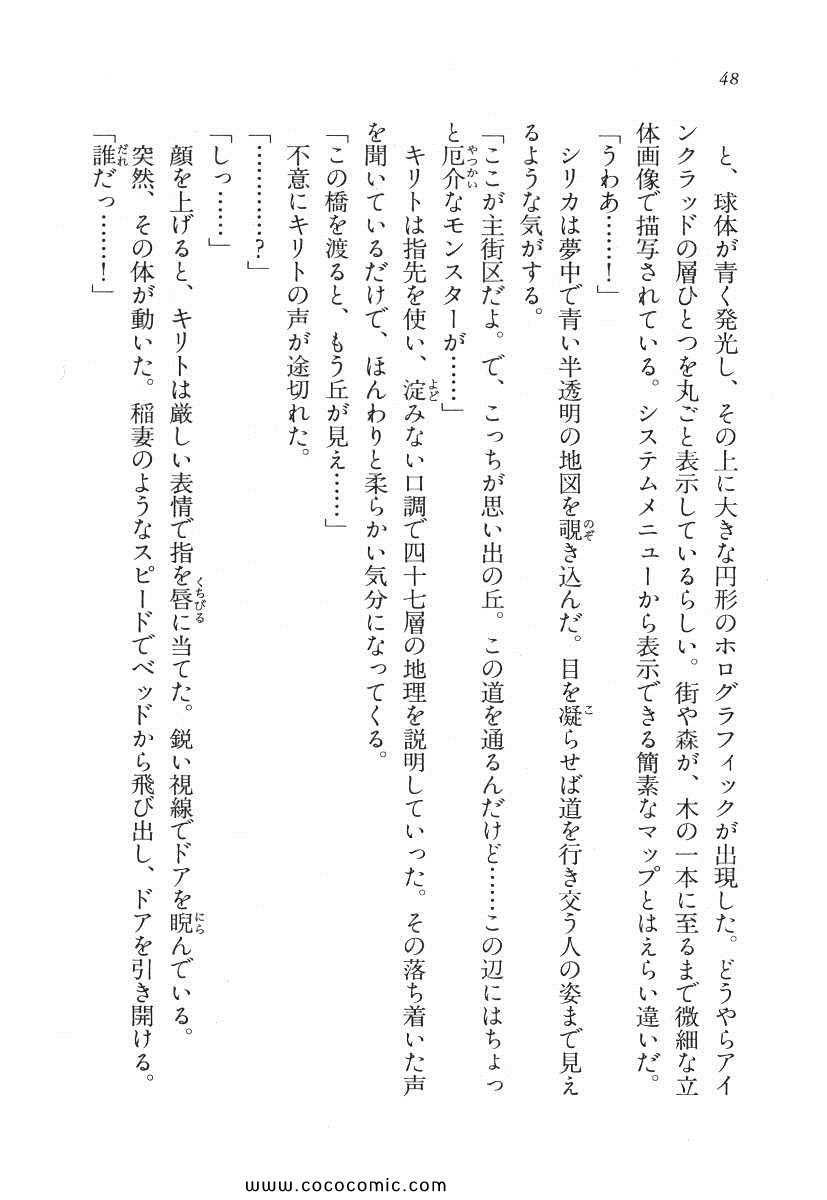 48
と、球体が青く発光し、その上に大きな円形のホログラフィックが出現した。どうやらアイ
ンクラッドの層ひとつを丸ごと表示しているらしい。街や森が、木の一本に至るまで微細な立
体画像で描写されている。システムメニューから表示できる簡素なマップとはえらい違いだ。
「うわあ……！」
シリカは夢中で青い半透明の地図を覗き込んだ。目を凝らせば道を行き交う人の姿まで見え
るような気がする。
「ここが主街区だよ。で、こっちが思い出の丘。この道を通るんだけど……この辺にはちょっ
と厄介なモンスターが……」
キリトは指先を使い、淀みない口調で四十七層の地理を説明していった。その落ち着いた声
を聞いているだけで、ほんわりと柔らかい気分になってくる。
「この橋を渡ると、もう丘が見え……」
不意にキリトの声が途切れた。
「…………？」
「しっ……」
顔を上げると、キリトは厳しい表情で指を唇に当てた。鋭い視線でドアを睨んでいる。
突然、その体が動いた。稲妻のようなスピードでベッドから飛び出し、ドアを引き開ける。
「誰だっ……！」
www.cococomic.com/